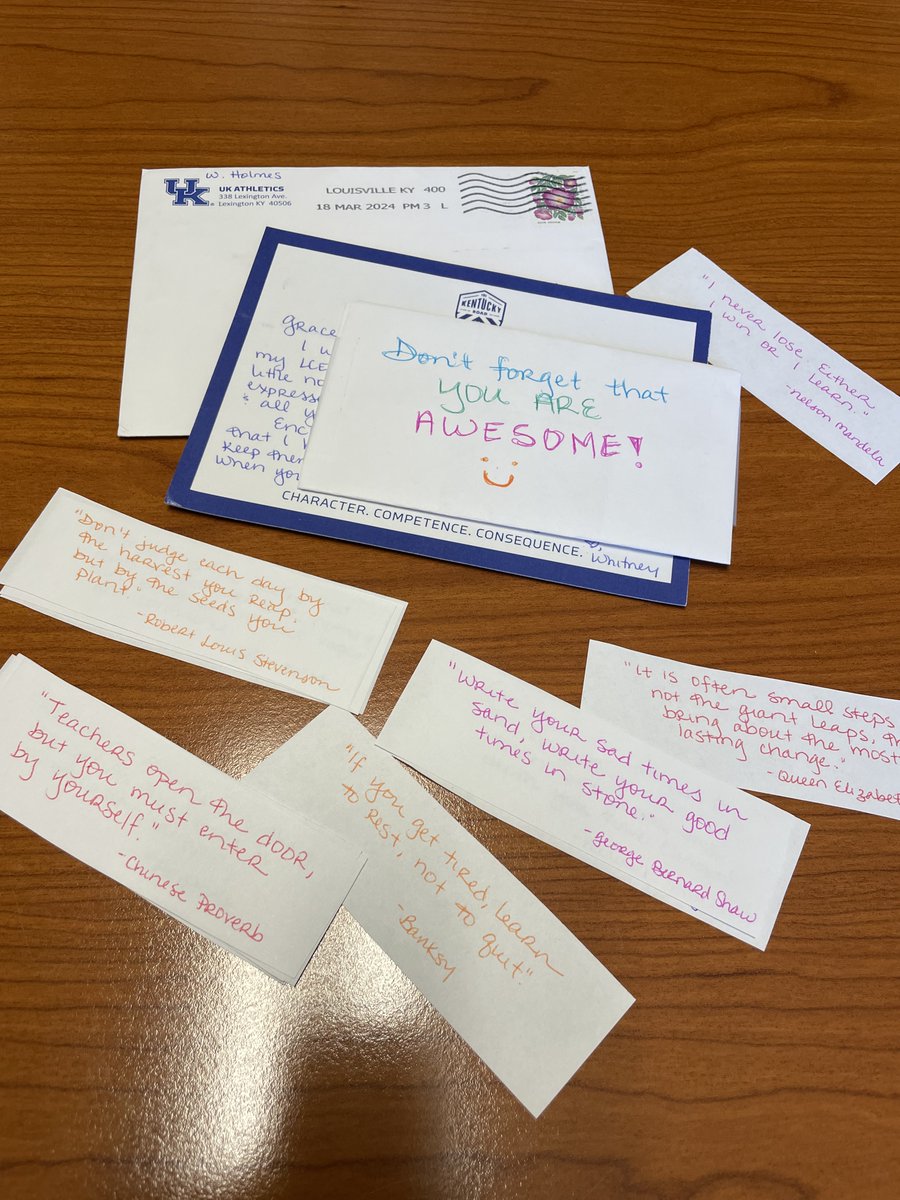 W. Holmes
UK
UK ATHLETICS
338 Lexington Ave.
Lexington KY 40506
LOUISVILLE KY 400
18 MAR 2024 PM 3 L
THE
KENTUCKY
ROAD
Grace
I
my LCE
little no
express
& all y
Enc
that I
keep the
when you
CHARACTER. COMPETENCE. CONSEQUENCE.
Whitney
Don't forget that
YOU ARE
AWESOME!
"I never lose. Either
I win or I learn."
-Nelson Mandela
"Don't judge each day by
the harvest you reap.
but by the seeds you
plant."
-Robert Louis Stevenson
"Teachers open the door,
but you must enter
by yourself."
-Chinese Proverb
"If you get tired, learn
to rest, not to quit."
-Banksy
"Write your sad times in
sand, write your good
times in stone."
-George Bernard Shaw
"It is often small steps
not the giant leaps, th
bring about the most
lasting change."
-Queen Elizabet